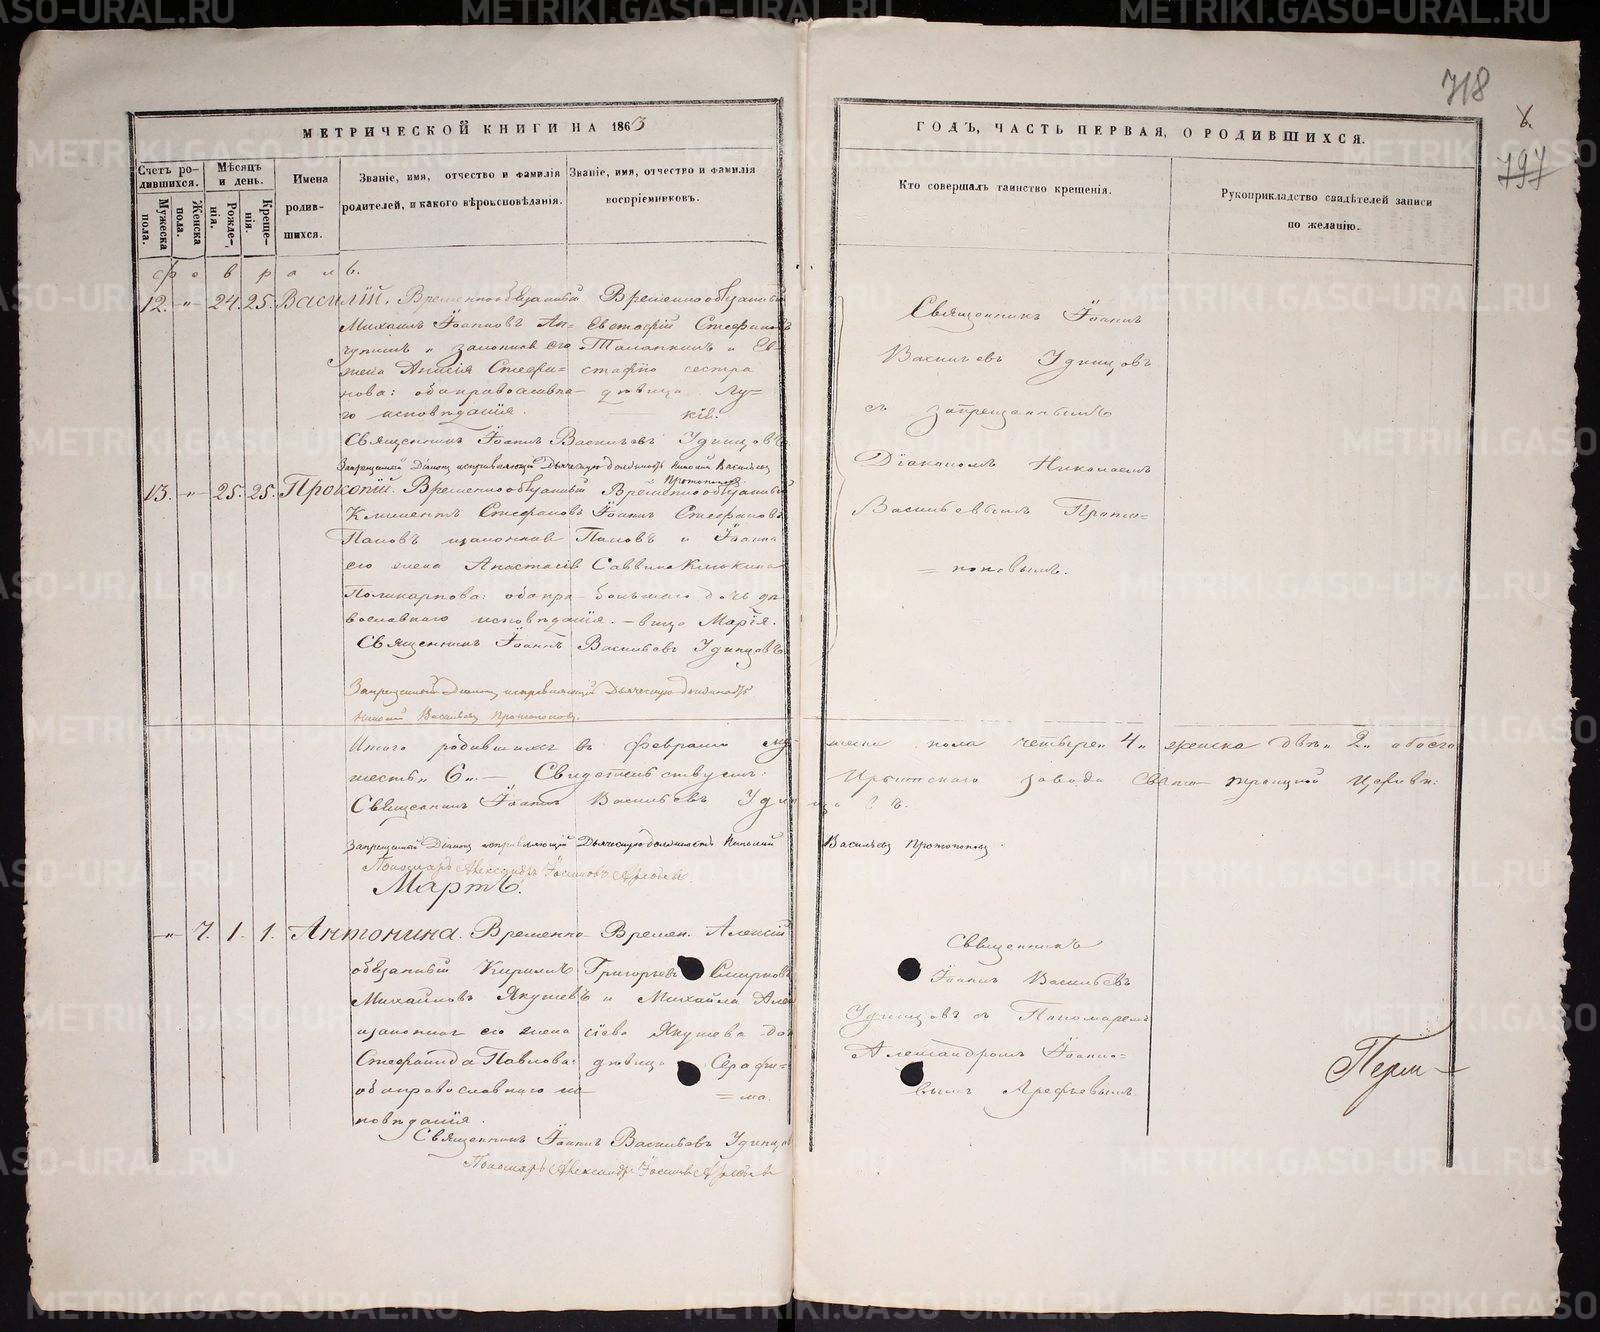 718
6.
797
МЕТРИЧЕСКОЙ КНИГИ НА 1863
ГОДЪ, ЧАСТЬ ПЕРВАЯ, О РОДИВШИХСЯ.
Счетъ ро-
дившихся.
Мужеска пола.
Женска пола.
Мѣсяцъ
и день.
Рожде-
нія.
Креще-
нія.
Имена
родив-
шихся.
Званіе, имя, отчество и фамилія
родителей, и какого вѣроисповѣданія.
Званіе, имя, отчество и фамилія
воспріемниковъ.
Кто совершалъ таинство крещенія.
Рукоприкладство свидѣтелей записи
по желанію.
Февраль.
12. -„- 24. 25. Василій. Временнообязанный
Михаилъ Іоанновъ
и законная его
жена Анисія Стефа-
нова: оба православна-
го исповѣданія.
Временнообязанный
Евстафій Стефановъ
Таланкинъ и Ев-
стафія сестра
дѣвица Лу-
кія.
Священникъ Іоаннъ Васильевъ Удинцовъ
Запрещенный Діаконъ исправляющій Дьяческую должность Николай Васильевъ
Протопоповъ.
Священникъ Іоаннъ
Васильевъ Удинцовъ
съ запрещеннымъ
Діакономъ Николаемъ
Васильевымъ Прото-
= поповымъ.
13. -„- 25. 25. Прокопій. Временнообязанный
Климентъ Стефановъ
Поповъ и законная
его жена Анастасія
Поликарпова: оба пра-
вославнаго исповѣданія.
Временнообязанный
Іоаннъ Стефановъ
Поповъ и Іоанна
Саввина Клюкина
большаго дочь дѣ-
-вица Марія.
Священникъ Іоаннъ Васильевъ Удинцовъ
Запрещенный Діаконъ исправляющій Дьяческую должность
Николай Васильевъ Протопоповъ.
Итого родившихся въ февралѣ му-
жеска пола четыре„ 4„ женска двѣ„ 2„ обоего
шесть„ 6„.— Свидѣтельствуемъ:
завода Свято Троицкой Церкви:
Священникъ Іоаннъ Васильевъ Удинцовъ.
Запрещенный Діаконъ исправляющій Дьяческую должность Николай Васильевъ Протопоповъ.
Пономарь Александръ Іоанновъ Арефьевъ.
Мартъ.
-„- 7. 1. 1. Антонина. Временно-
обязанный Кириллъ
Михайловъ Якушевъ
и законная его жена
Стефанида Павлова:
оба православнаго ис-
повѣданія.
Времен. Алексій
Григорьевъ Смирновъ
и Михайла Алек-
сіева Якушева дочь
дѣвица Серафи-
= ма.
Священникъ
Іоаннъ Васильевъ
Удинцовъ съ Пономаремъ
Александромъ Іоанно-
вымъ Арефьевымъ.
Перм-
Священникъ Іоаннъ Васильевъ Удинцовъ
Пономарь Александръ Іоанновъ Арефьевъ